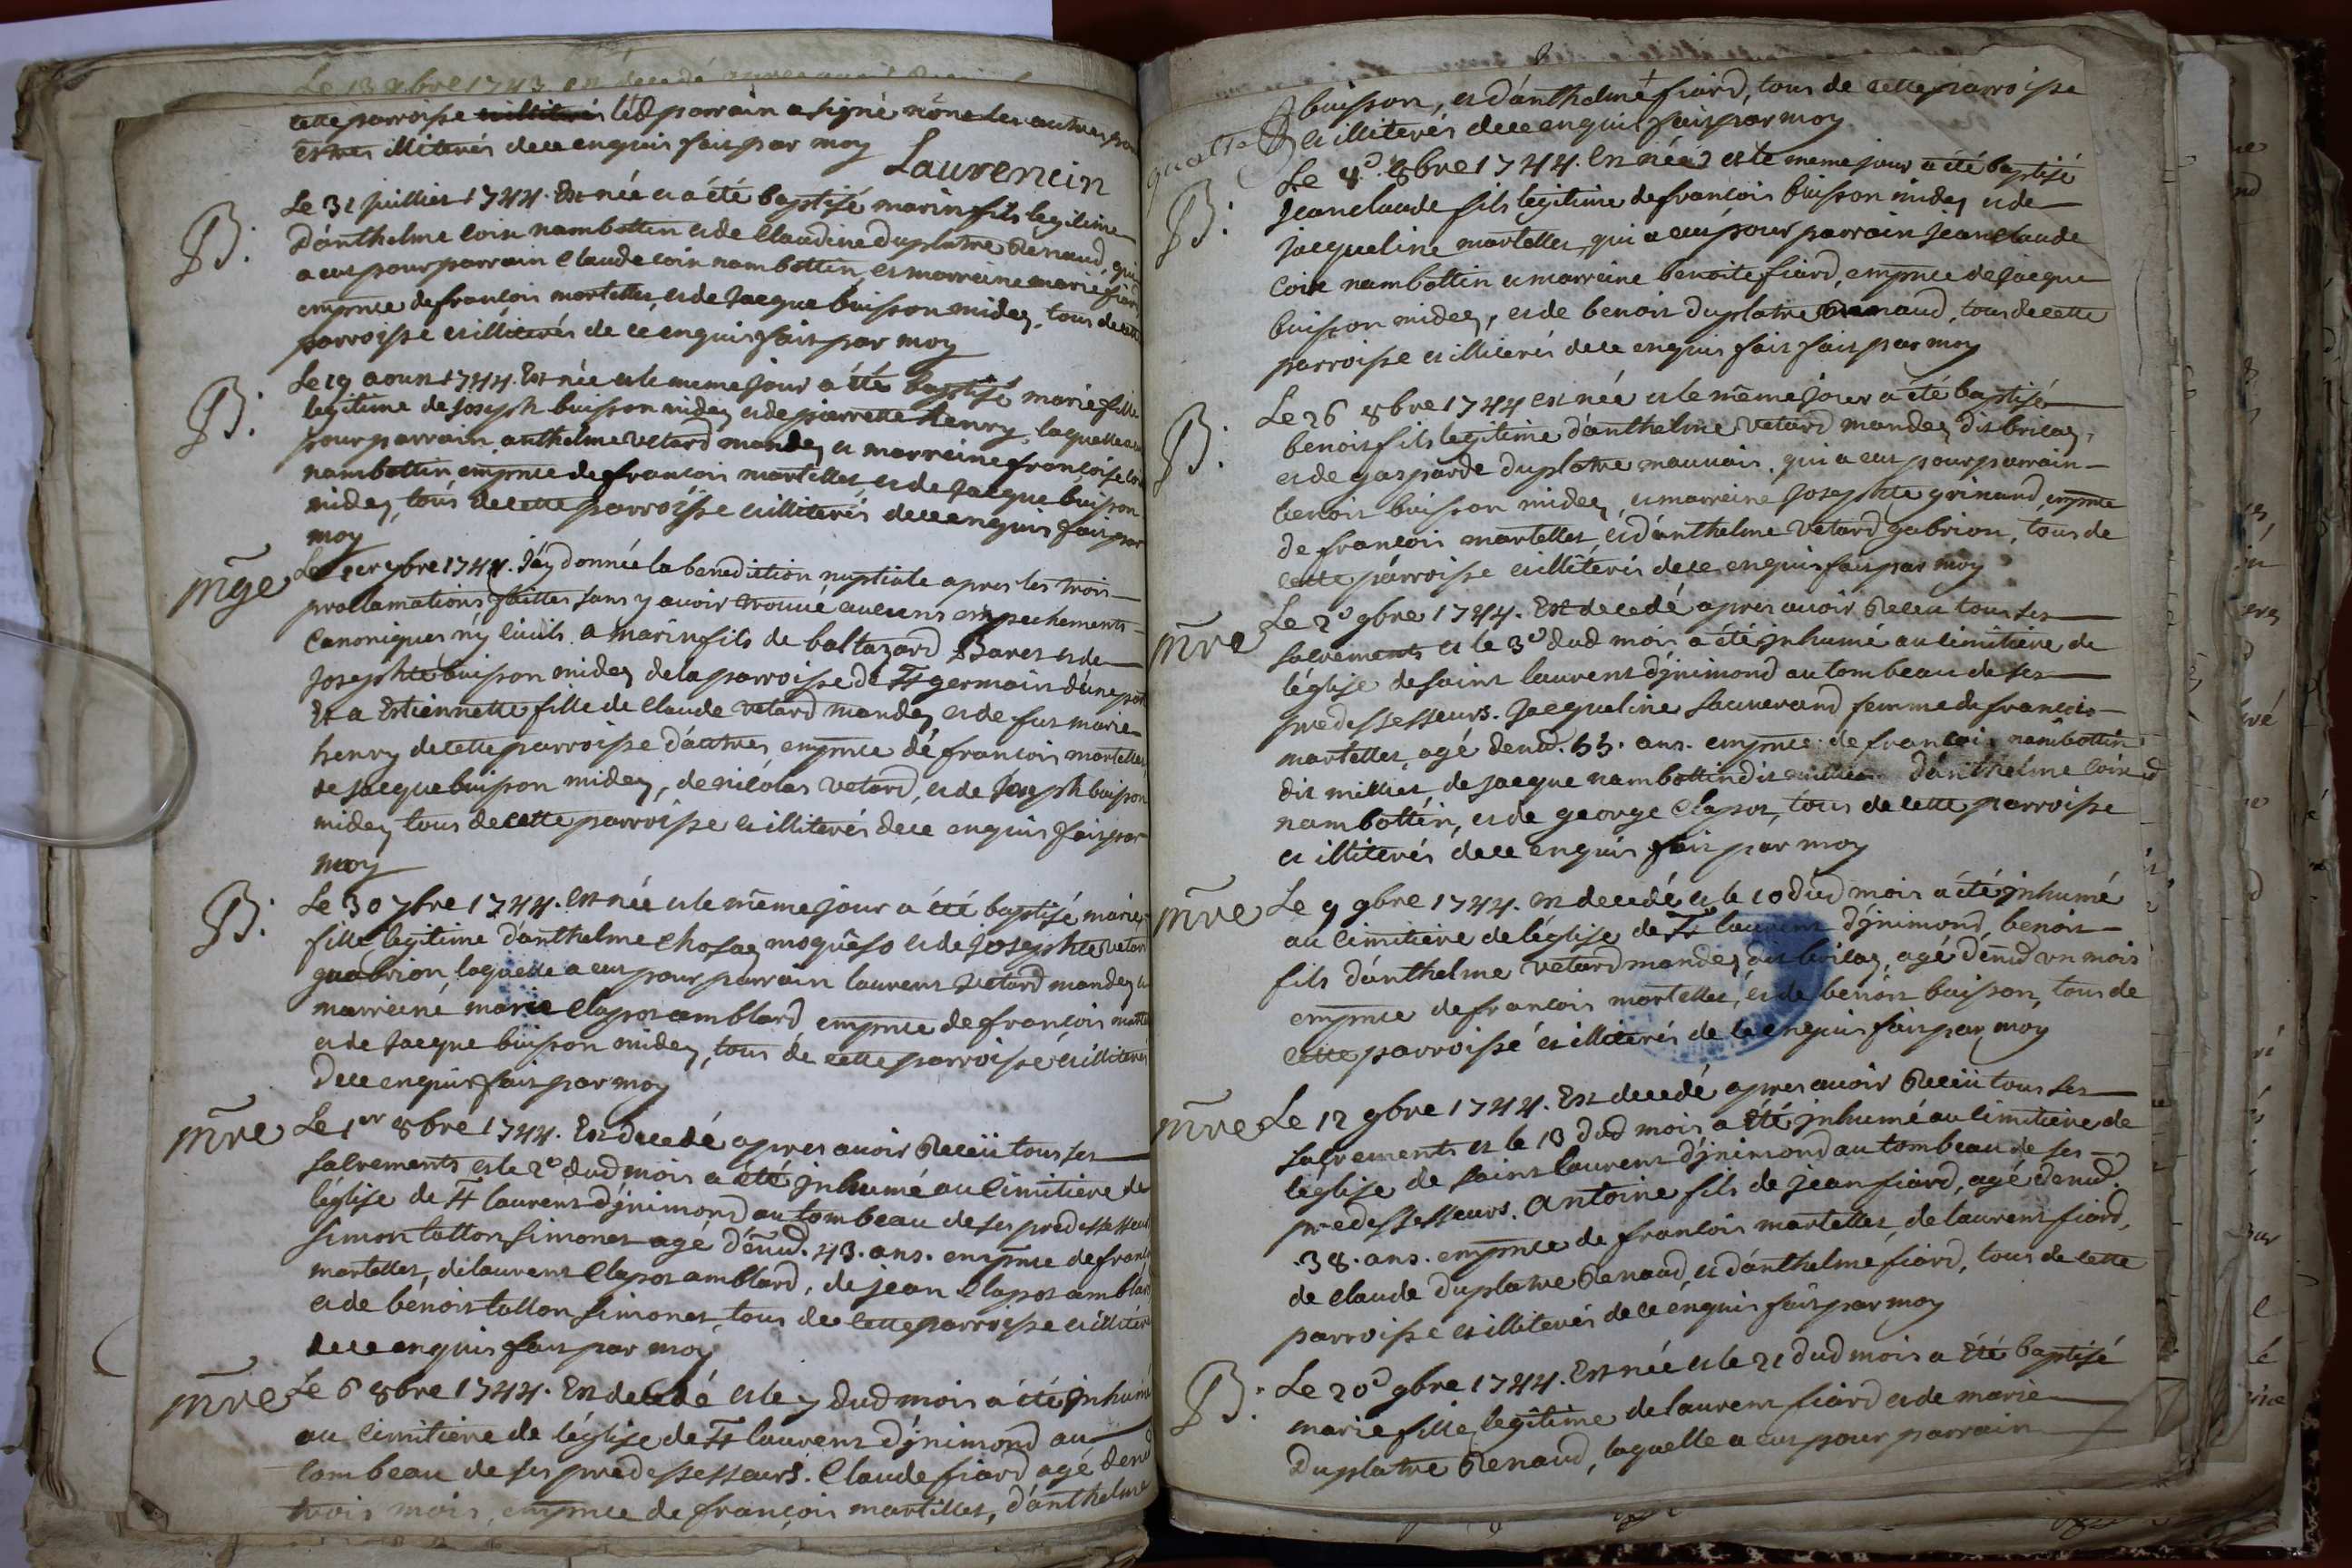 Le 13 xbre 1743. est decedé apres avoir
cette parroisse illiterés led parrain a signé none les autres pour
estres illiterés de ce enquis fait par moy
Laurencin
B. Le 31 juillet 1744. Est née et a été baptisé marin fils legitime
d'anthelme coin nambottin et de Claudine duplatre Renaud, qui
a eut pour parrain Claude coin nambottin, et marraine marie fiard
empnce de françois martelles, et de Jacque buisson midey, tous de cette
parroisse et illiterés de ce enquis fait par moy
B. Le 19 aoust 1744. Est née et le meme jour a été baptisé marie fille
legitime de Joseph buisson midey et de pierrette henry, laquelle a eut
pour parrain anthelme vetard mandey et marraine françoise coin
nambottin empnce de francois martelles, et de Jacque buisson
midey, tous de cette parroisse et illiterés de ce enquis fait par
moy
mge Le 1er 7bre 1744. J'ay donnée la benediction nuptiale apres les trois
proclamations faittes sans y avoir trouvé aucuns empechements
Canoniques n'y Civils. a marin fils de baltazard Baret et de
Josephte buisson midey de la parroisse de St germain d'une part
Et a Estiennette fille de Claude vetard mandey et de fut marie
henry de cette parroisse d'autres, empnce de francois martelles,
de Jacque buisson midey, de nicolas vetard, et de Joseph buisson
midey tous de cette parroisse et illiterés de ce enquis fait par
moy
B. Le 30 7bre 1744. est née et le même jour a été baptisé marie,
fille legitime d'anthelme Chosay moquêso et de Josephte vetard
guabrion, laquelle a eut pour parrain laurent vetard mandey et
marraine marie Clapot amblard, empnce de francois martelles
et de Jacque buisson midey, tous de cette parroisse et illiterés
de ce enquis fait par moy
mre Le 1er 8bre 1744. Est decedé apres avoir Receü tous ses
sacrements et le 2e dud mois a été inhumé au Cimitiere de
l'église de St laurent d'jnimond au tombeau de ses predessesseurs
Simon tatton simonet agé d'énud. 43. ans. empnce de francois
martelles, de laurent Clapot amblard, de jean Clapot amblard
et de bénoit tallon simonet, tous de cette parroisse et illiterés
de ce enquis fait par moy
mre Le 6 8bre 1744. Est decedé et le 7 dud mois a été inhumé
au Cimitiere de l'église de St laurent d'jnimond au
tombeau de ses predessesseurs. Claude fiard agé denud
trois mois, empnce de françois martilles, d'anthelme
quatre
buisson, et d'anthelme fiard, tous de cette parroisse
et illiterés de ce enquis fait par moy
B. Le 8e 8bre 1744. est née et le meme jour a été baptisé
Jean claude fils legitime de francois buisson midey et de
jacqueline martelles, qui a eu pour parrain jean claude
Coin nambottin et marraine benoite fiard, empnce de Jacque
buisson midey, et de benoit duplatre Renaud, tous de cette
parroisse et illiterés de ce enquis fait fait par moy
B. Le 26 8bre 1744 est née et le même jour a été baptisé
benoit fils legitime d'anthelme vetard mandey dit bricay,
et de gasparde duplatre mauvais, qui a eut pour parrain
benoit buisson midey, et marraine Josephte grinand, empnce
de françois martelles, et d'anthelme vetard gabrion, tous de
cette parroisse et illiterés de ce enquis fait par moy
mre Le 2e 9bre 1744. Est decedé apres avoir Receu tous ses
sacrements et le 3e dud mois a été inhumé au cimitiere de
l'église de saint laurent d'jnimond au tombeau de ses
predessesseurs. Jacqueline sauverand femme de francois
martelles, agé denud. 65. ans. empnce de francois nambottin
dit millier, de Jacque nambottin dit d'anthelme Coin
nambottin, et de george Clapot, tous de cette parroisse
et illiterés de ce enquis fait par moy
mre Le 9 9bre 1744. est decedé et le 10 dud mois a été inhumé
au Cimitiere de l'église de St laurent d'jnimond, benoit
fils d'anthelme vetard mandey dit bricay, agé d'énud un mois
empnce de francois martelles, et de benoit buisson, tous de
cette parroisse et illiterés de ce enquis fait par moy
mre Le 12 9bre 1744. Est decedé apres avoir Receü tous ses
sacrements et le 13 dud mois a été inhumé au cimitiere de
l'église de saint laurent d'jnimond au tombeau de ses
predessesseurs. Antoine fils de jean fiard, agé denud.
.38. ans. empnce de francois martelles, de laurent fiard,
de claude duplatre Renaud, et d'anthelme fiard, tous de cette
parroisse et illiterés de ce énquis fait par moy
B. Le 20e 9bre 1744. Est née et le 21 dud mois a été baptisé
marie fille legitime de laurent fiard et de marie
Duplatre Renaud, laquelle a eut pour parrain